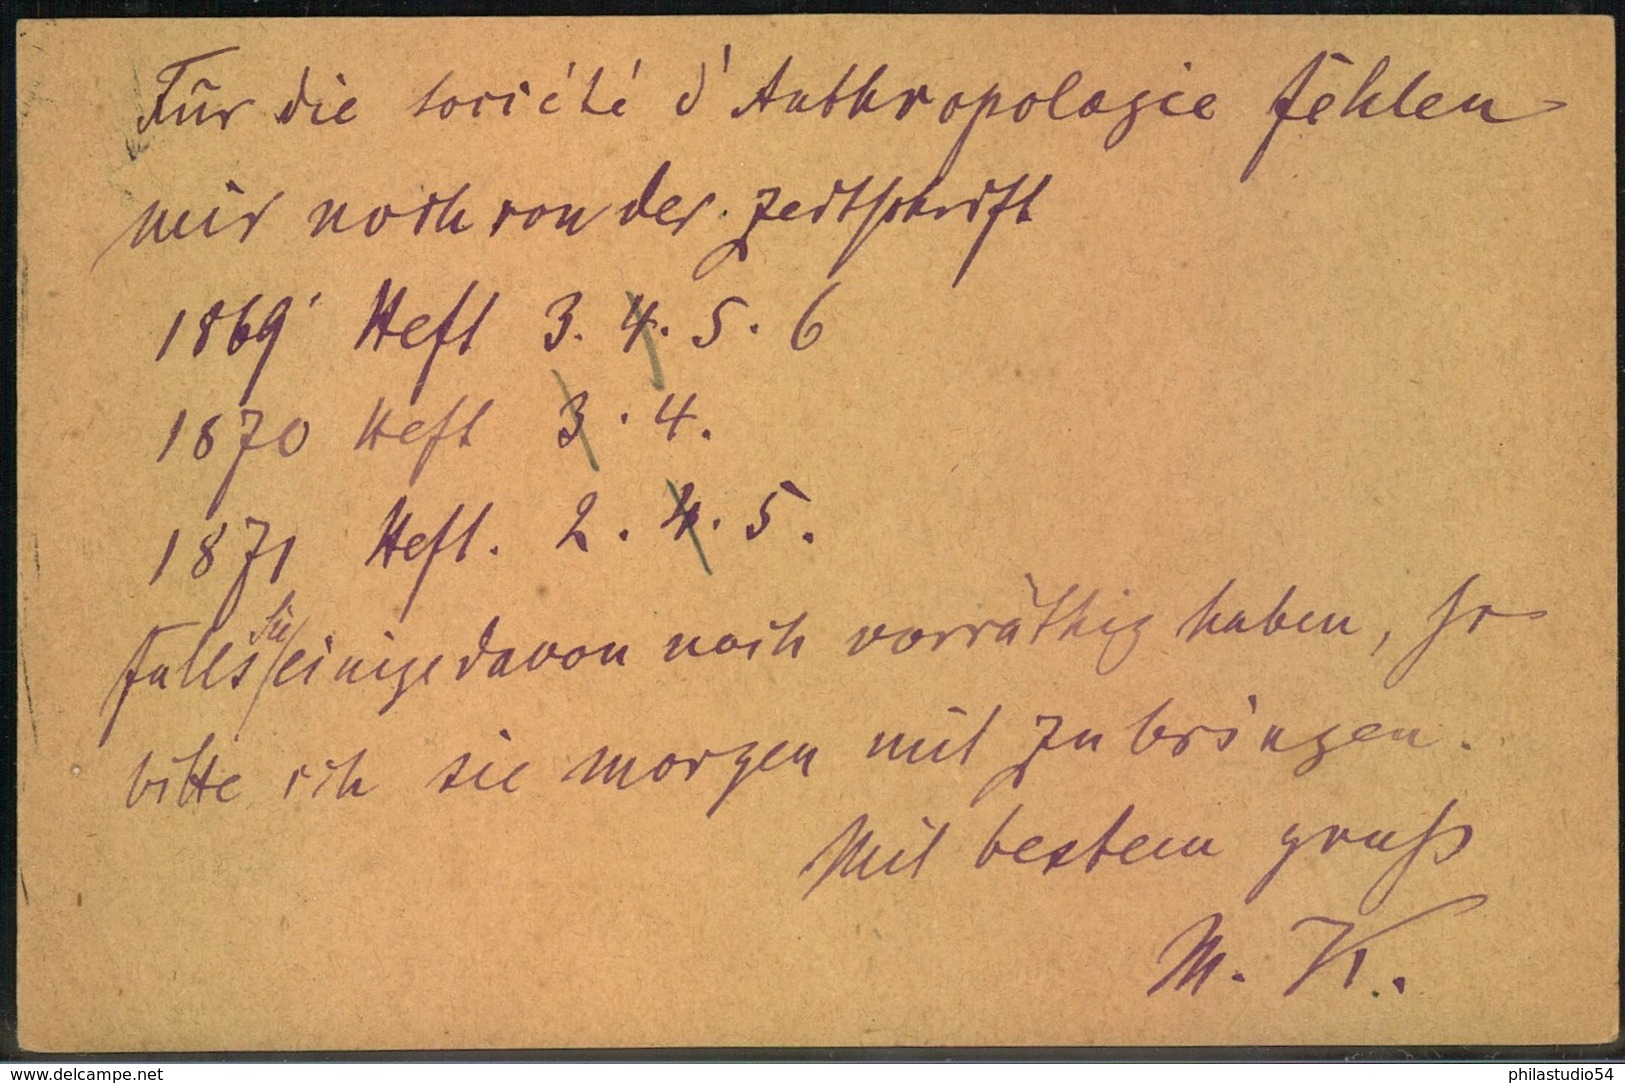 Für die société d'Anthropologie fehlen
mir noch von der Zeitschrift
1869 Heft 3. 4. 5. 6
1870 Heft 3. 4.
1871 Heft. 2. 4. 5.
Falls Sie einige davon noch vorräthig haben, so
bitte ich sie morgen mit zu bringen.
Mit bestem gruß
M. K.
www.delcampe.net
philastudio54